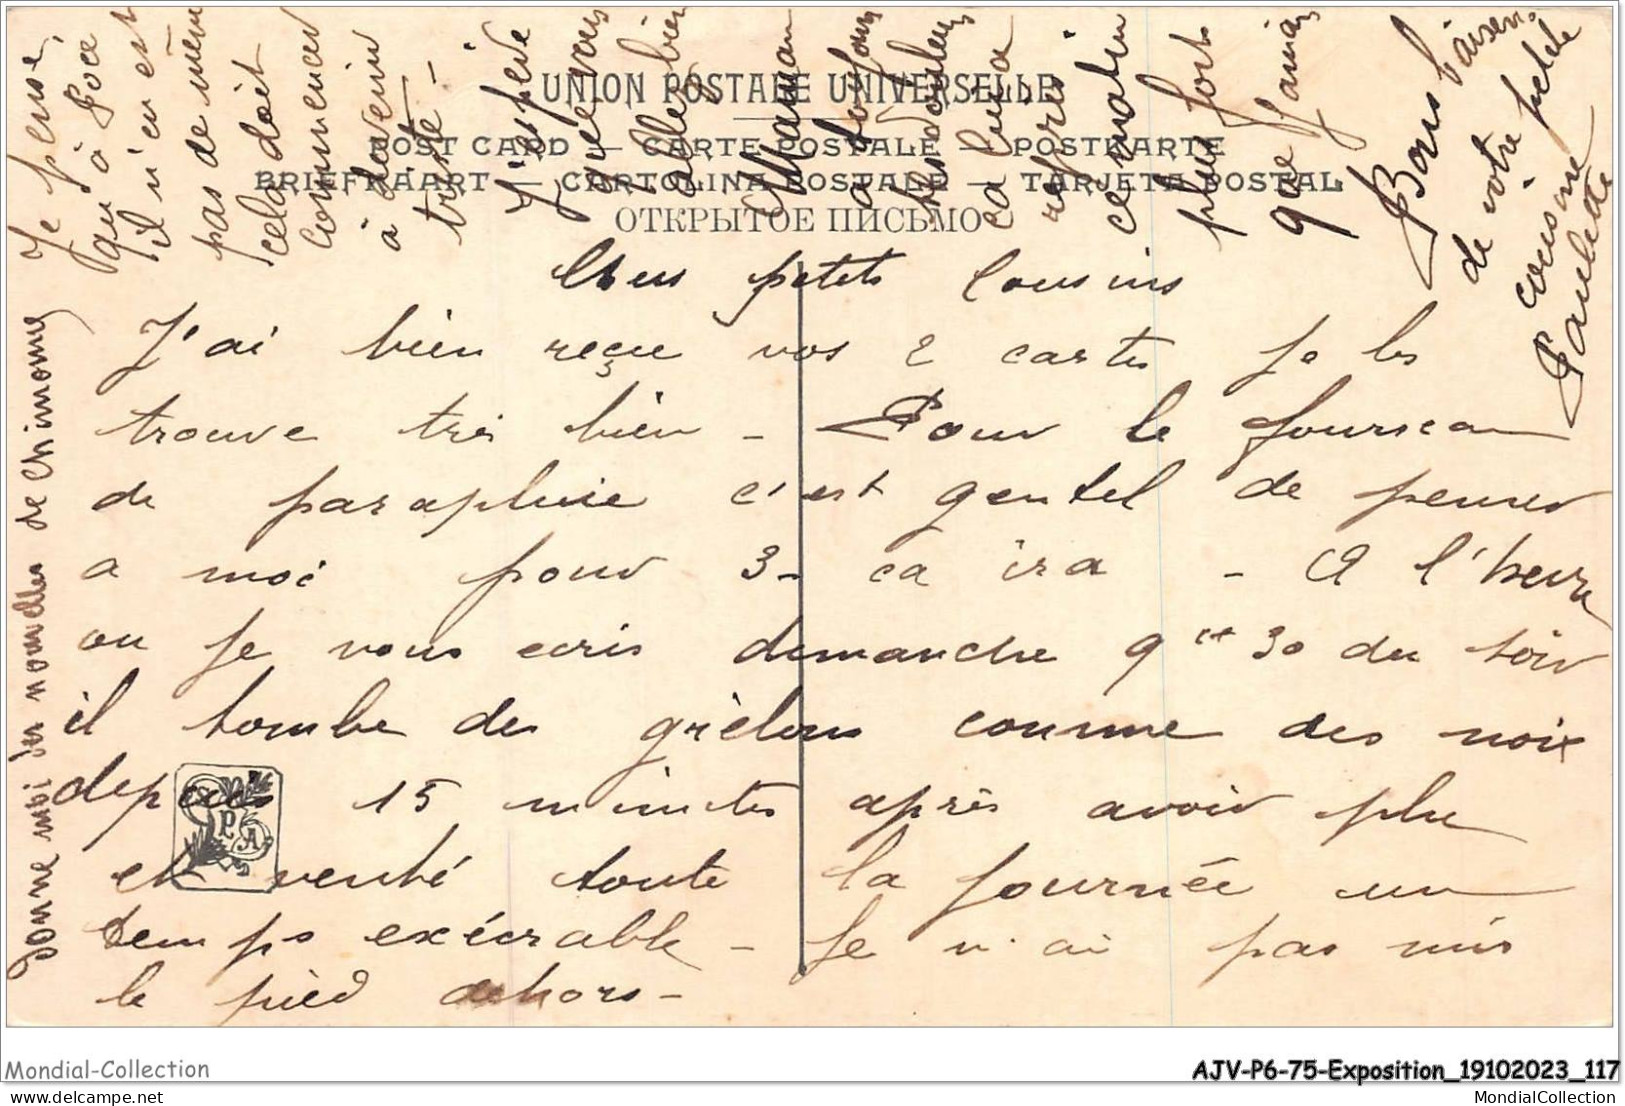 UNION POSTALE UNIVERSELLE
POST CARD — CARTE POSTALE — POSTKARTE
BRIEFKAART — CARTOLINA POSTALE — TARJETA POSTAL
ОТКРЫТОЕ ПИСЬМО
Chers petits Cousins
J'ai bien reçu vos 2 cartes je les
trouve très bien - Pour le fourreau
de parapluie c'est gentil de penser
a moi pour 3 - ca ira - A l'heure
ou je vous ecris dimanche 9 30 du soir
il tombe des grèlons comme des noix
depuis 15 minutes après avoir plu
et venté toute la journée un
temps exécrable - Je n'ai pas mis
le pied dehors -
Je pense
qu'à
il n'en est
pas de même
cela doit
commencer
à devenir
triste -
J'espère
que vous
allez bien
Maman
a toujours
ses douleurs
ca l'a
repris
ce matin
plus fort
que jamais
Bons baisers
de votre petite
cousine
Paulette
Donne moi des nouvelles de
PA
Mondial-Collection
AJV-P6-75-Exposition_19102023_117
MondialCollection